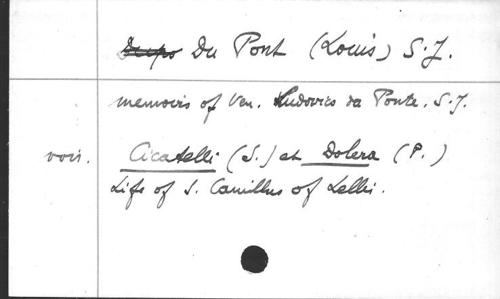 Du Pont (Louis) S.J.
memoirs of Ven. Ludovico da Ponte. S.J.
voir. Cicatelli (S.) et Dolera (P.)
Life of S. Camillus of Lelli.